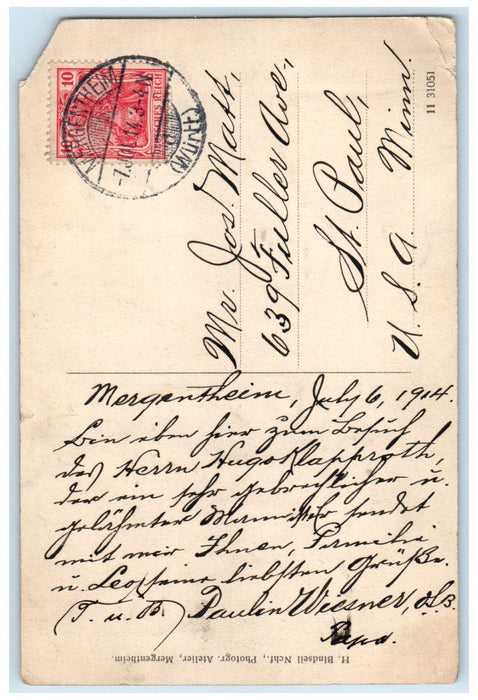 10
DEUTSCHES REICH
MERGENTHEIM
(WÜRTT.)
11 31051
Mr. Jos. Matt,
639 Fuller Ave.,
St. Paul,
Minn.
U. S. A.
Mergentheim, July 6, 1914.
Bin eben hier zum Besuch
des Herrn Hugo Klapproth,
der ein sehr gebrechlicher u.
gelähmter Mann ist. Er sendet
mit mir Ihnen, Familie
u. Leo seine liebsten Grüße.
(T. u. B.) Paulin Wiesner, O.S.B.
H. Bindseil Nchf., Photogr. Atelier, Mergentheim.